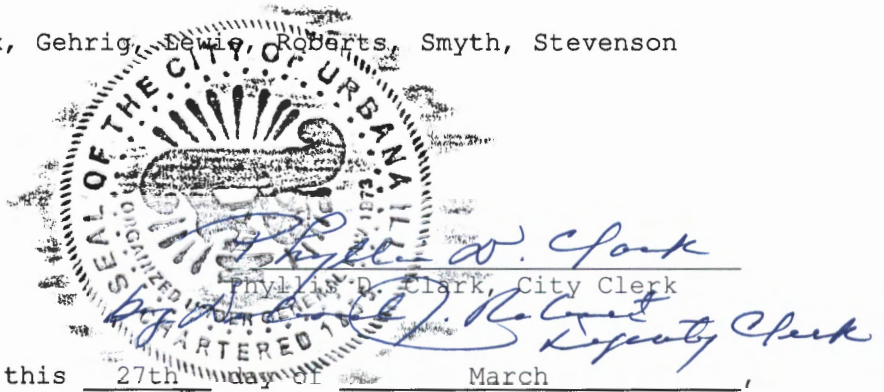 , Gehrig, Lewis, Roberts, Smyth, Stevenson
SEAL OF THE CITY OF URBANA ILL
REORGANIZED UNDER GENERAL LAW 1873
CHARTERED 18
Phyllis D. Clark
Phyllis D. Clark, City Clerk
by J. Roberts
Deputy Clerk
this 27th day of March,